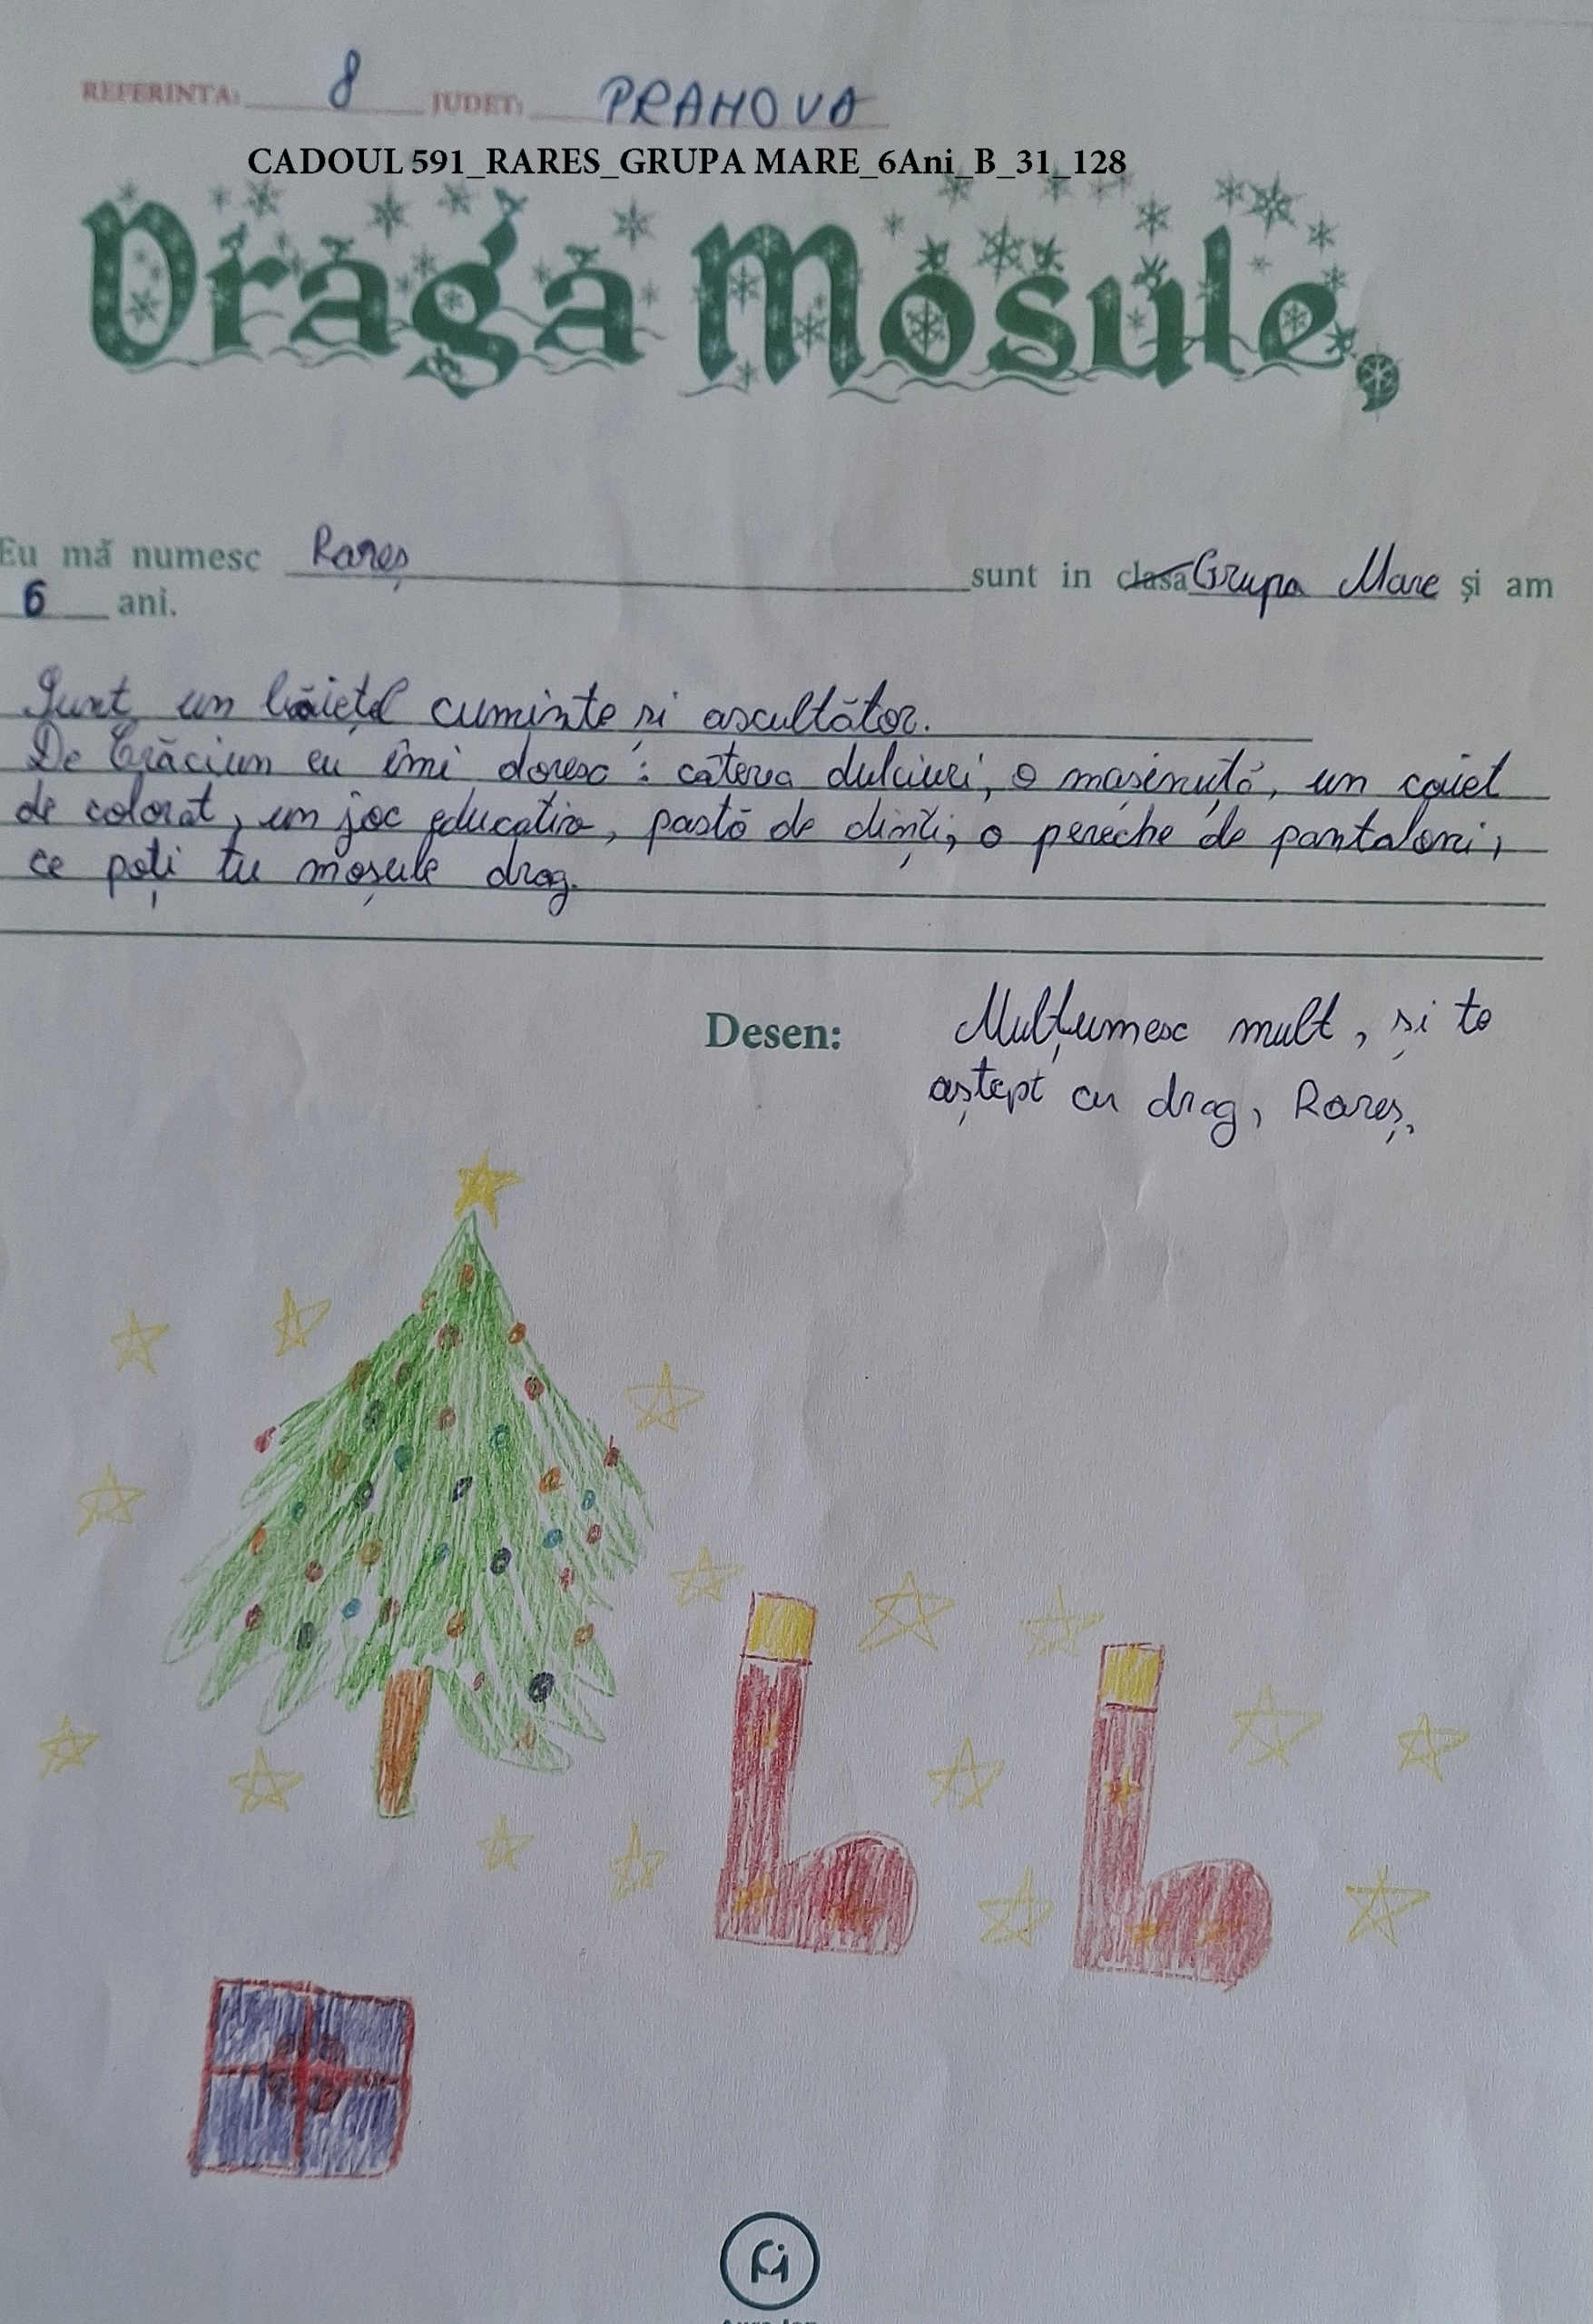 REFERINTA: 8 JUDET: PRAHOVA
CADOUL 591_RARES_GRUPA MARE_6Ani_B_31_128
Draga Mosule,
Eu mă numesc Rareș sunt in clasa Grupa Mare şi am
6 ani.
Sunt un băiețel cuminte și ascultător.
De Crăciun eu îmi doresc : câteva dulciuri, o mașinuță, un caiet
de colorat, un joc educativ, pastă de dinți, o pereche de pantaloni,
ce poți tu moșule drag.
Desen: Mulțumesc mult, și te
aștept cu drag, Rareș.